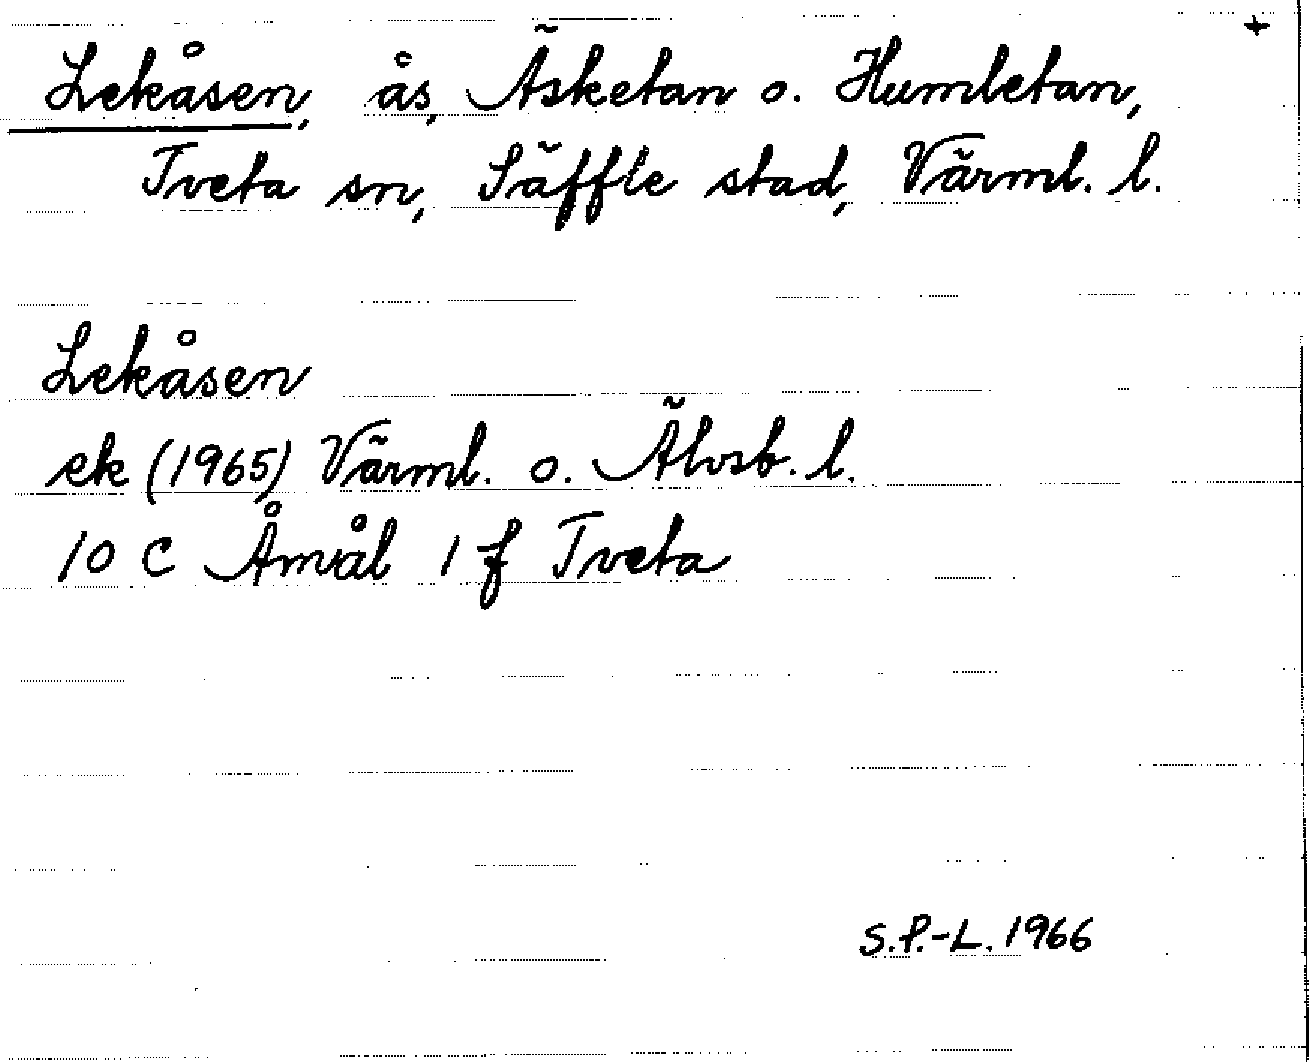 +
Lekåsen, ås, Äsketan o. Humletan,
Tveta sn, Säffle stad, Värml. l.
Lekåsen
ek (1965) Värml. o. Älvsb. l.
10 C Åmål 1 f Tveta
S.P.-L. 1966